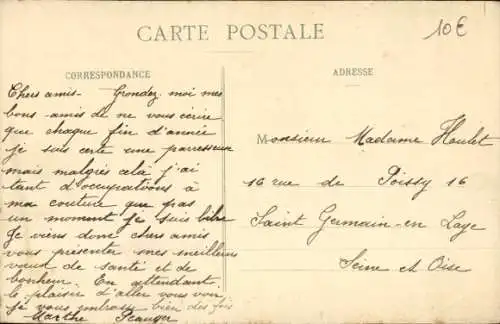 CARTE POSTALE
10€
CORRESPONDANCE
Chers amis - Grondez moi mes
bons amis de ne vous écrire
que chaque fin d'année
je suis certe une paresseuse
mais malgrés celà j'ai
tant d'occupations à
ma couture que pas
un moment je suis libre
Je viens donc chers amis
vous présenter mes meilleurs
voeux de santé et de
bonheur. En attendant
le plaisir d'aller vous voir
je vous embrasse bien des fois
Marthe
ADRESSE
Monsieur Madame Houlet
16 rue de Poissy 16
Saint Germain-en Laye
Seine et Oise